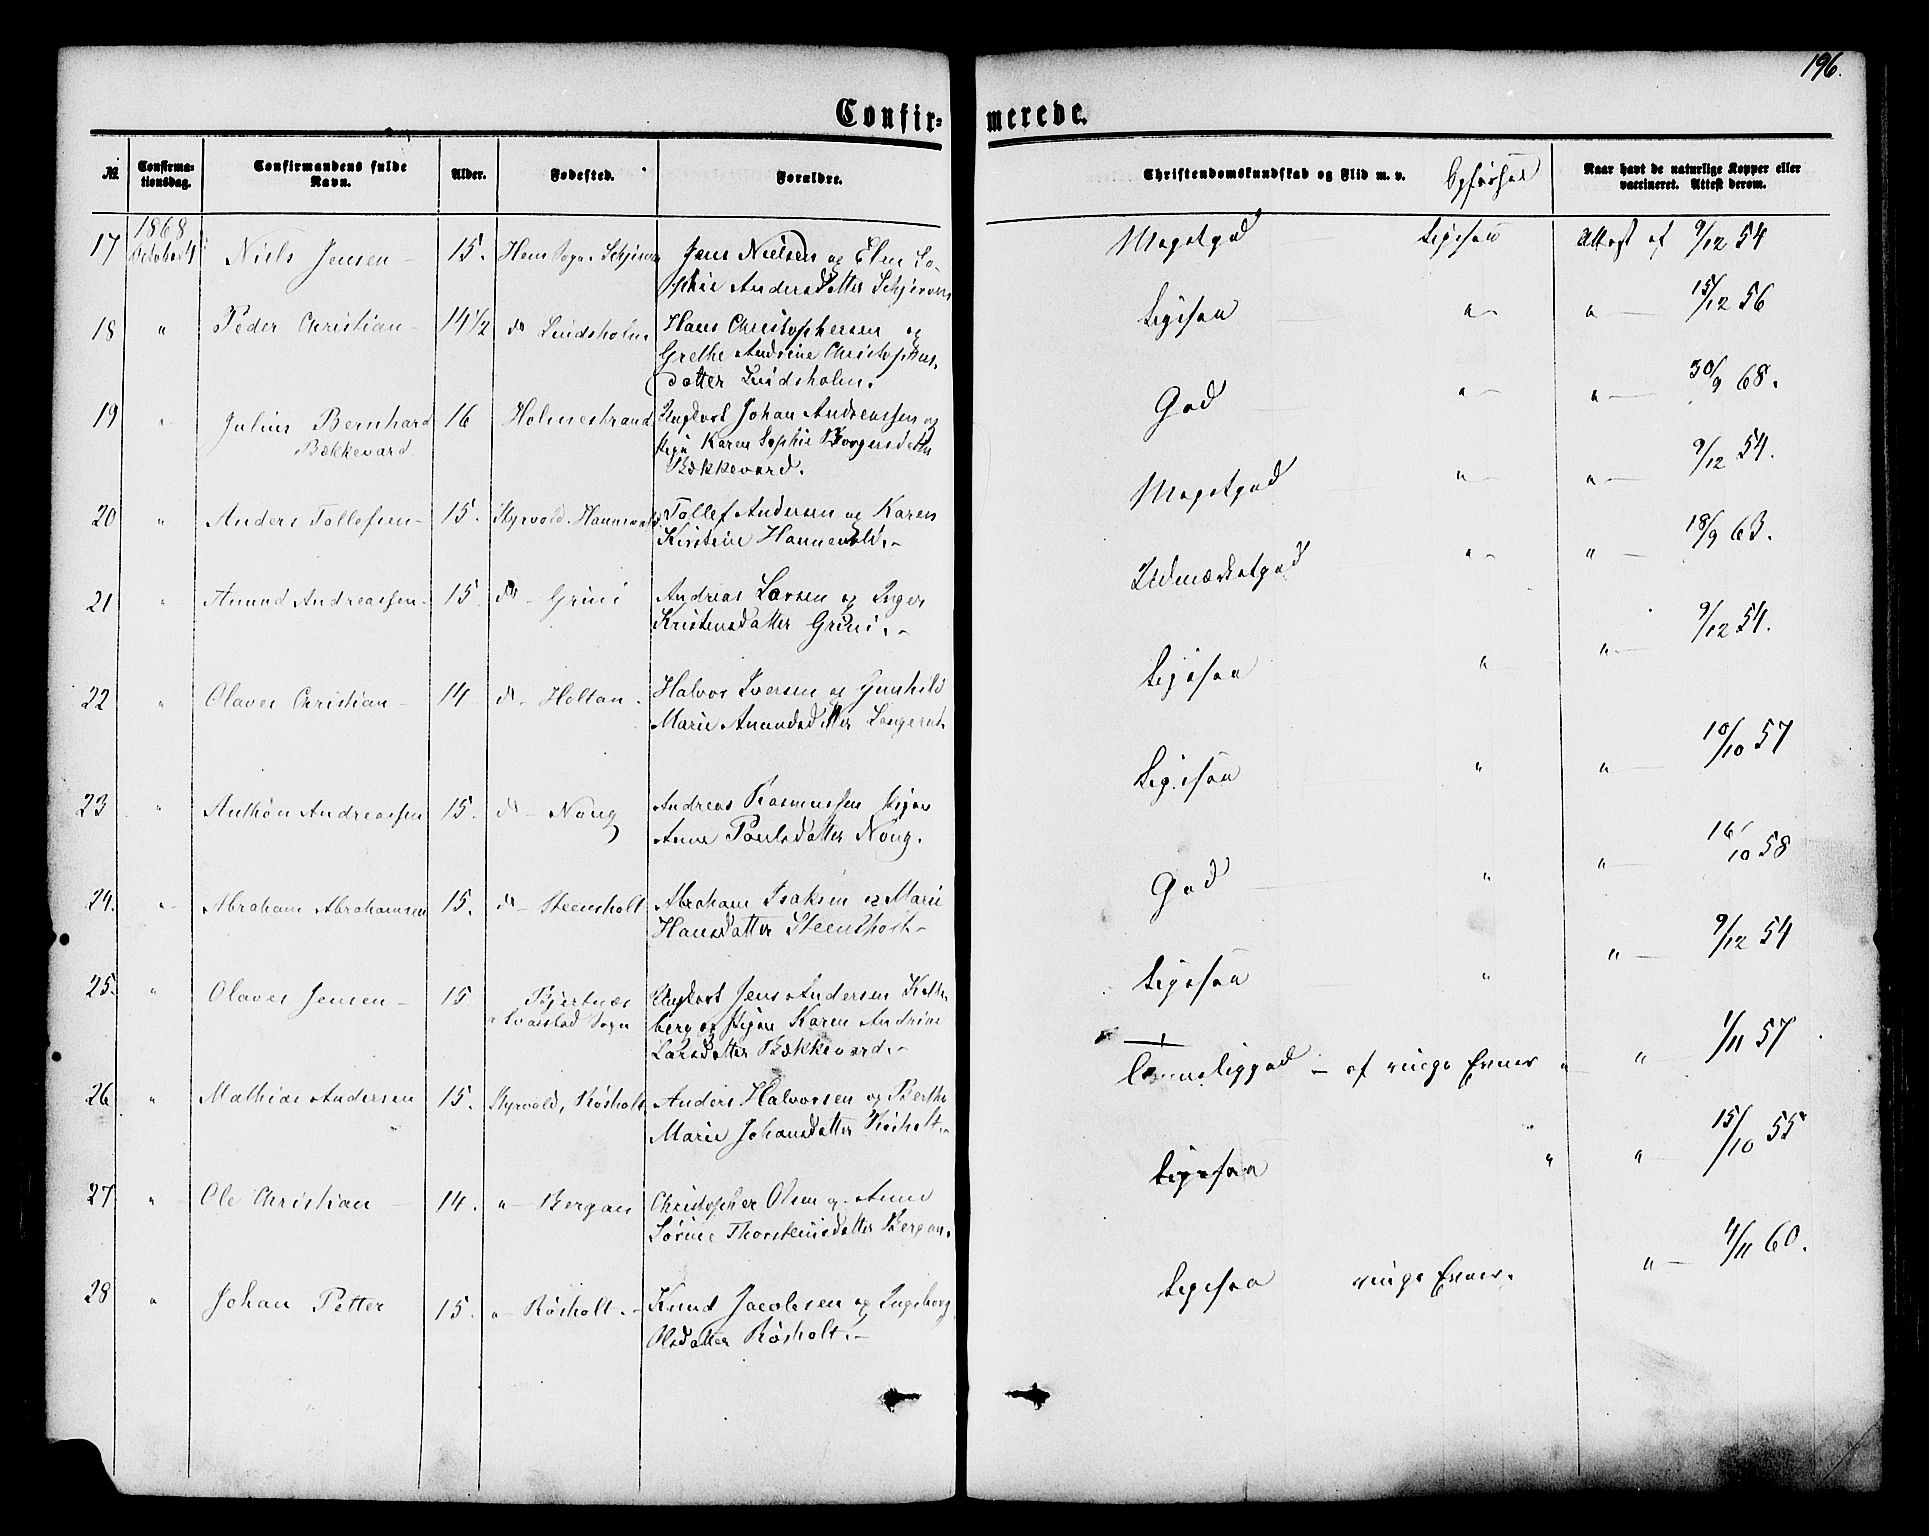 196.
Confir-
merede.
№
Confirma-
tionsdag.
Confirmandens fulde
Navn.
Alder.
Fødested.
Forældre.
Christendomskundskab og Flid m. v. Opførsel
Naar havt de naturlige Kopper eller
vaccineret. Attest derom.
1868
17 October 4 Niels Jensen - 15. Hem Sogn Jens Nielsen og Elen So-
phie Andersdatter
Megetgod Ligesaa Attest af 9/12 54
18 " Peder Christian - 14 1/2 do Lindsholm Hans Christophersen og
Grethe Andrine Christophers-
datter Lindsholm.
Ligesaa " - " - 15/12 56
19 " Julius Bernhard 16 Holmestrand Ungkarl Johan Andreassen og
Bækkevard Pige Karen Sophie Borgersdatter
Bækkevard.
God " - " - 30/9 68.
20 " Anders Tollefsen - 15. Styrvold Hannevold Tollef Andersen og Karen
Kirstine Hannevold. -
Megetgod " - " - 9/12 54.
21 " Amund Andreassen - 15 do - Grini Andreas Larsen og Inger
Kristensdatter Grini. -
Udmærketgod " - " - 18/9 63.
22 " Olaves Christian - 14 do - Holtan. Halvor Iversen og Gunhild
Marie Amundsdatter
Ligesaa " " - 9/12 54.
23 " Anthon Andreassen 15. do - Nøug Andreas Rasmussen Pige
Anne Poulsdatter Nøug.
Ligesaa " " - 10/10 57
24. " - Abraham Abrahamsen 15. do - Steensholt Abraham Isaksen og Marie
Hansdatter Steensholt -
God " " - 16/10 58
25. " Olaves Jensen - 15 Bjertnæs Ungkarl Jens Andersen
Svarstad Sogn berg og Pige Karen Andrine
Larsdatter Bækkevard. -
Ligesaa " " - 9/12 54
26 " Mathias Andersen 15. Styrvold, Røsholt. Anders Halvorsen og Berthe
Marie Johansdatter Røsholt. -
Temmeliggod - af ringe Evner " " - 1/11 57
27 " Ole Christian - 14. " - Bergan Christopher Olsen og Anne
Sørine Thorstensdatter Bergan.
Ligesaa " " - 15/10 55
28 " Johan Petter 15. " - Røsholt. - Knud Jacobsen og Ingeborg
Olsdatter Røsholt. -
Ligesaa ringe Evner. " - 4/11 60.